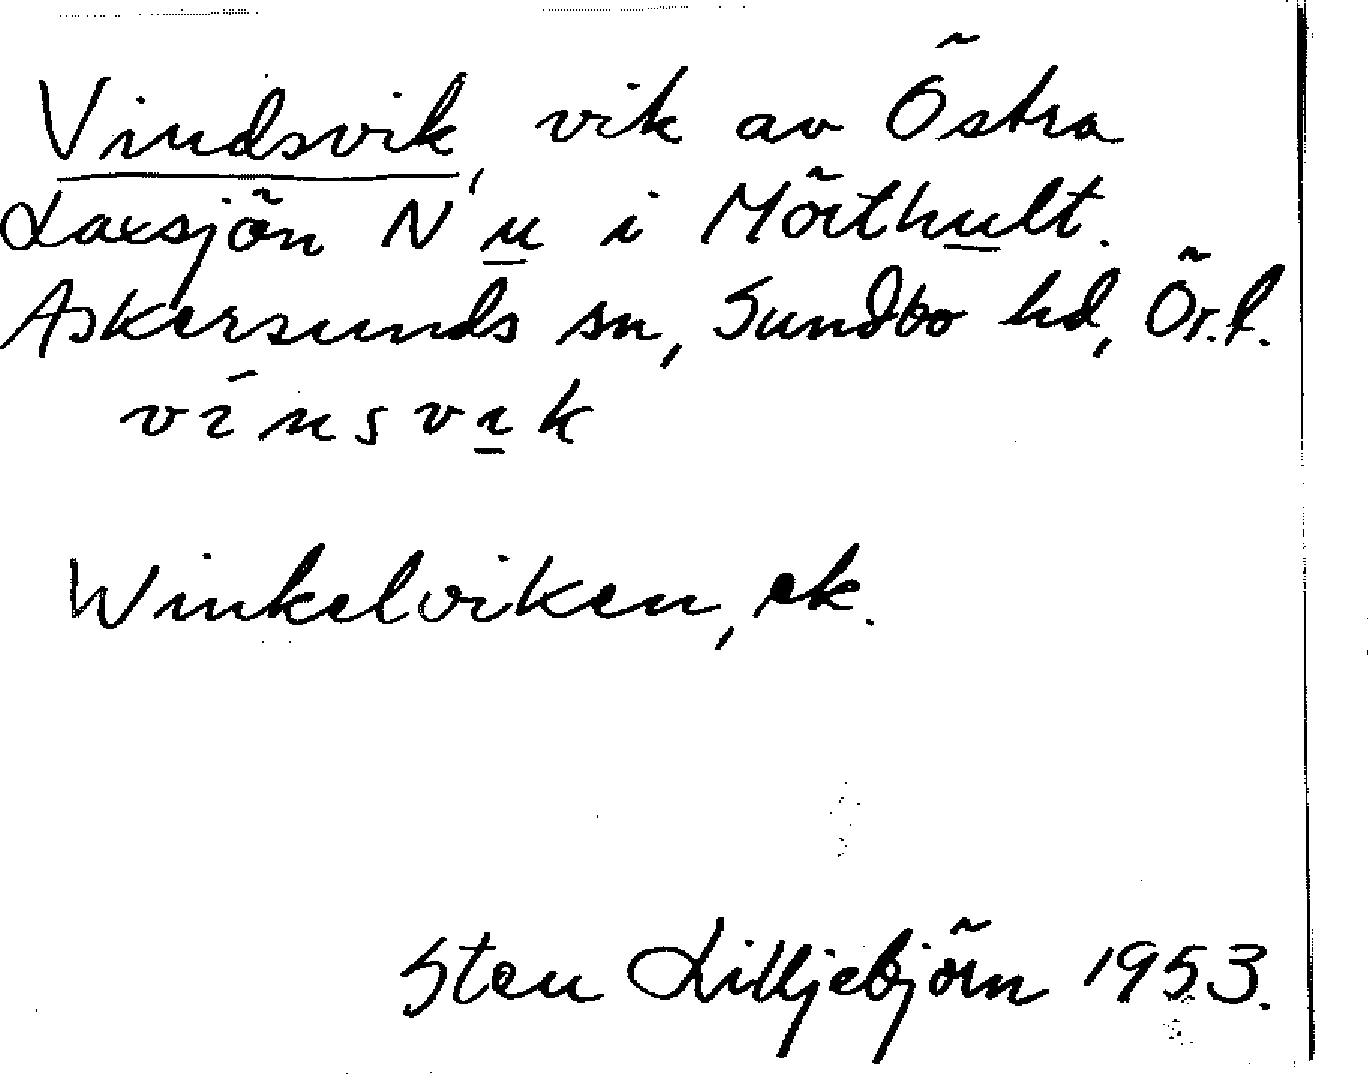 Vindsvik, vik av Östra
Laxsjön N u i Mörthult.
Askersunds sn, Sundbo hd, Ör. l.
vi̅nsvik
Winkelviken, ek.
Sten Lilljebjörn 1953.